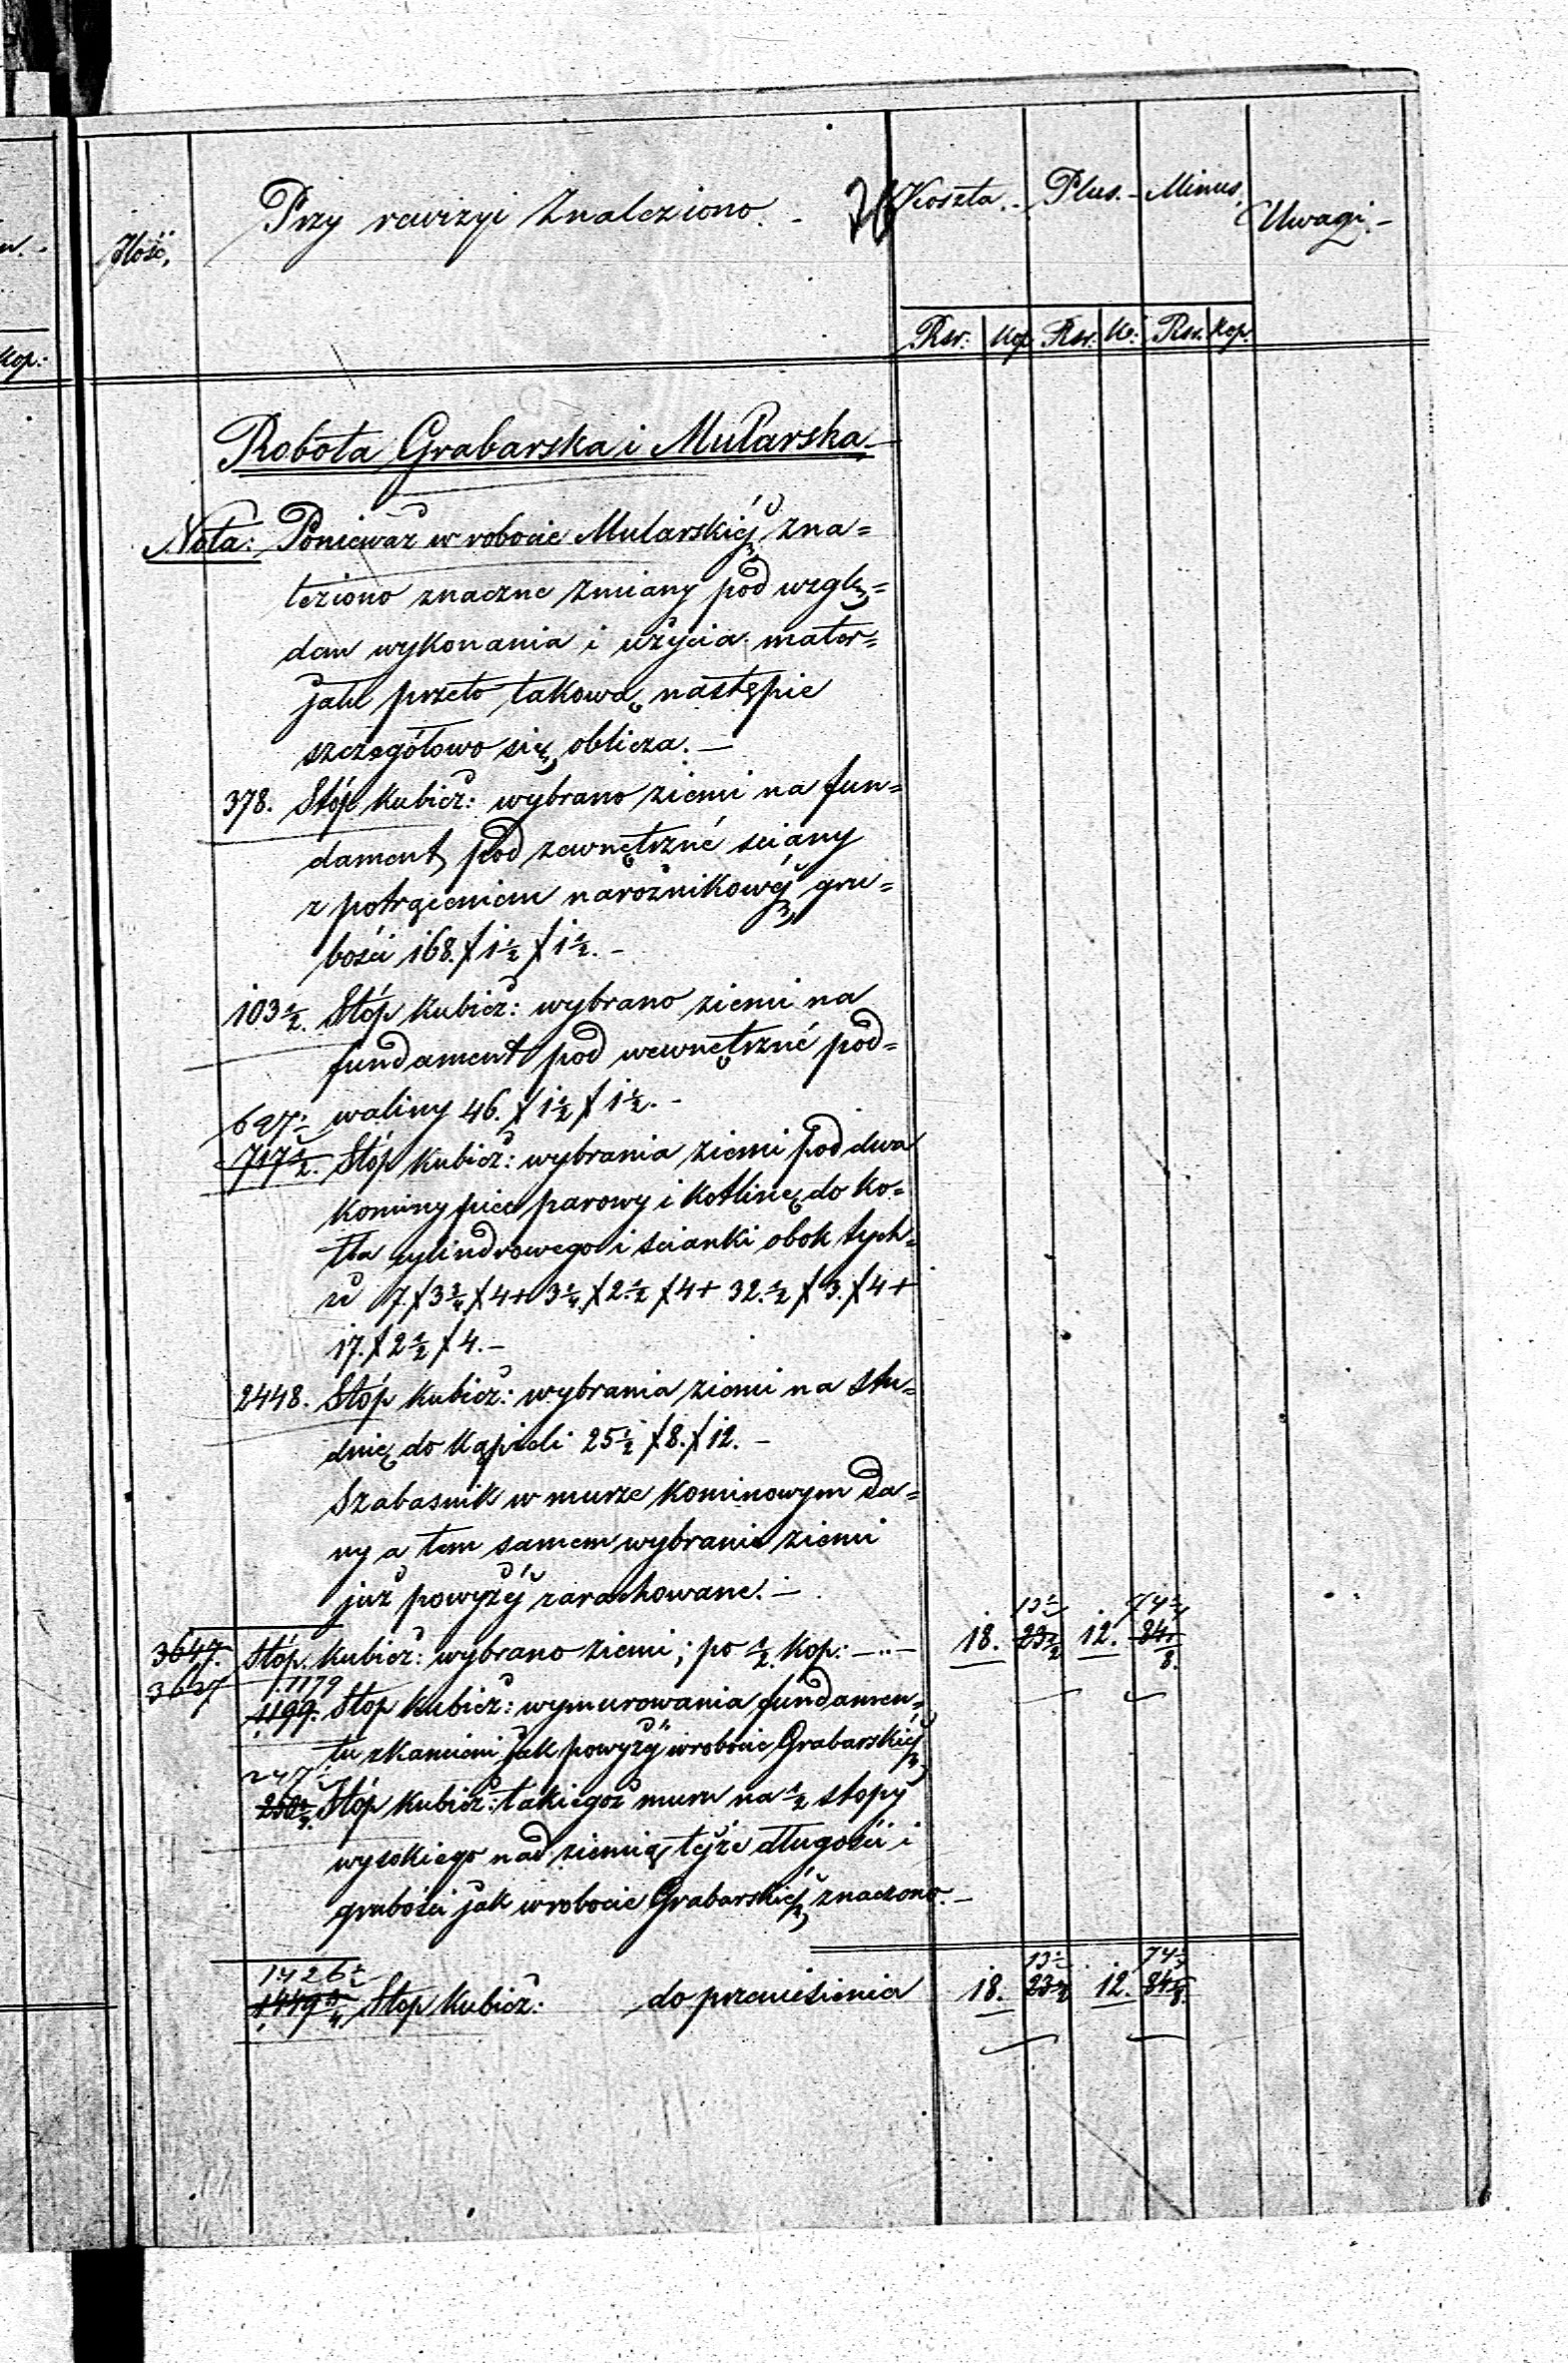 Przy rewizyi Znaleziono. - Koszta. - Plus. - Minus. Uwagi. -
Jlość,
Kop:
Rsr: Kop Rsr: K: Rsr. Kop.
Robota Grabarska i Mularska -
Nota: Ponieważ w robocie Mularskiéj zna=
leziono znaczne zmiany pod wzglę=
dem wykonania i użycia mater=
jału przeto takową następie
szczegółowo się oblicza. —
378. Stóp kubicz: wybrano ziemi na fun=
dament pod zewnętrzné sciany
z potrąceniem narożnikowéj gru=
bości 168. X 1½ X 1½. -
103½. Stóp kubicz: wybrano ziemi na
fundament pod wewnętrzné pod=
waliny 46. X 1½ X 1½. -
697½
717½. Stóp kubicz: wybrania ziemi pod dwa
kominy piec parowy i kotlinę do ko=
tła cylindrowego i scianki obok tych=
że 7. X 3¾ X 4 + 3¼ X 2½ X 4 + 32½ X 3. X 4 +
17. X 2½ X 4. -
2448. Stóp kubicz: wybrania ziemi na stu=
dnię do kąpieli 25½ X 8. X 12. -
Szabasnik w murze kominowym da=
ny a tem samem wybranie ziemi
już powyżéj zarachowane. —
13½ 74
3647. Stóp. kubicz: wybrano ziemi; po ½. kop: —..— 18. 23½ 12. 84
3627 1179
1199. Stop kubicz: wymurowania fundamen=
tu z kamieni jak powyżéj w robocie Grabarskiéj
247
250¾. Stóp kubicz: takiegoż muru na ½ stopy
wysokiego nad ziemią téjże długości i
grubości jak w robocie Grabarskiéj znaczono. -
1426 13½ 74
1449¾ Stop kubicz: do przeniesienia 18. 23½ 12. 84